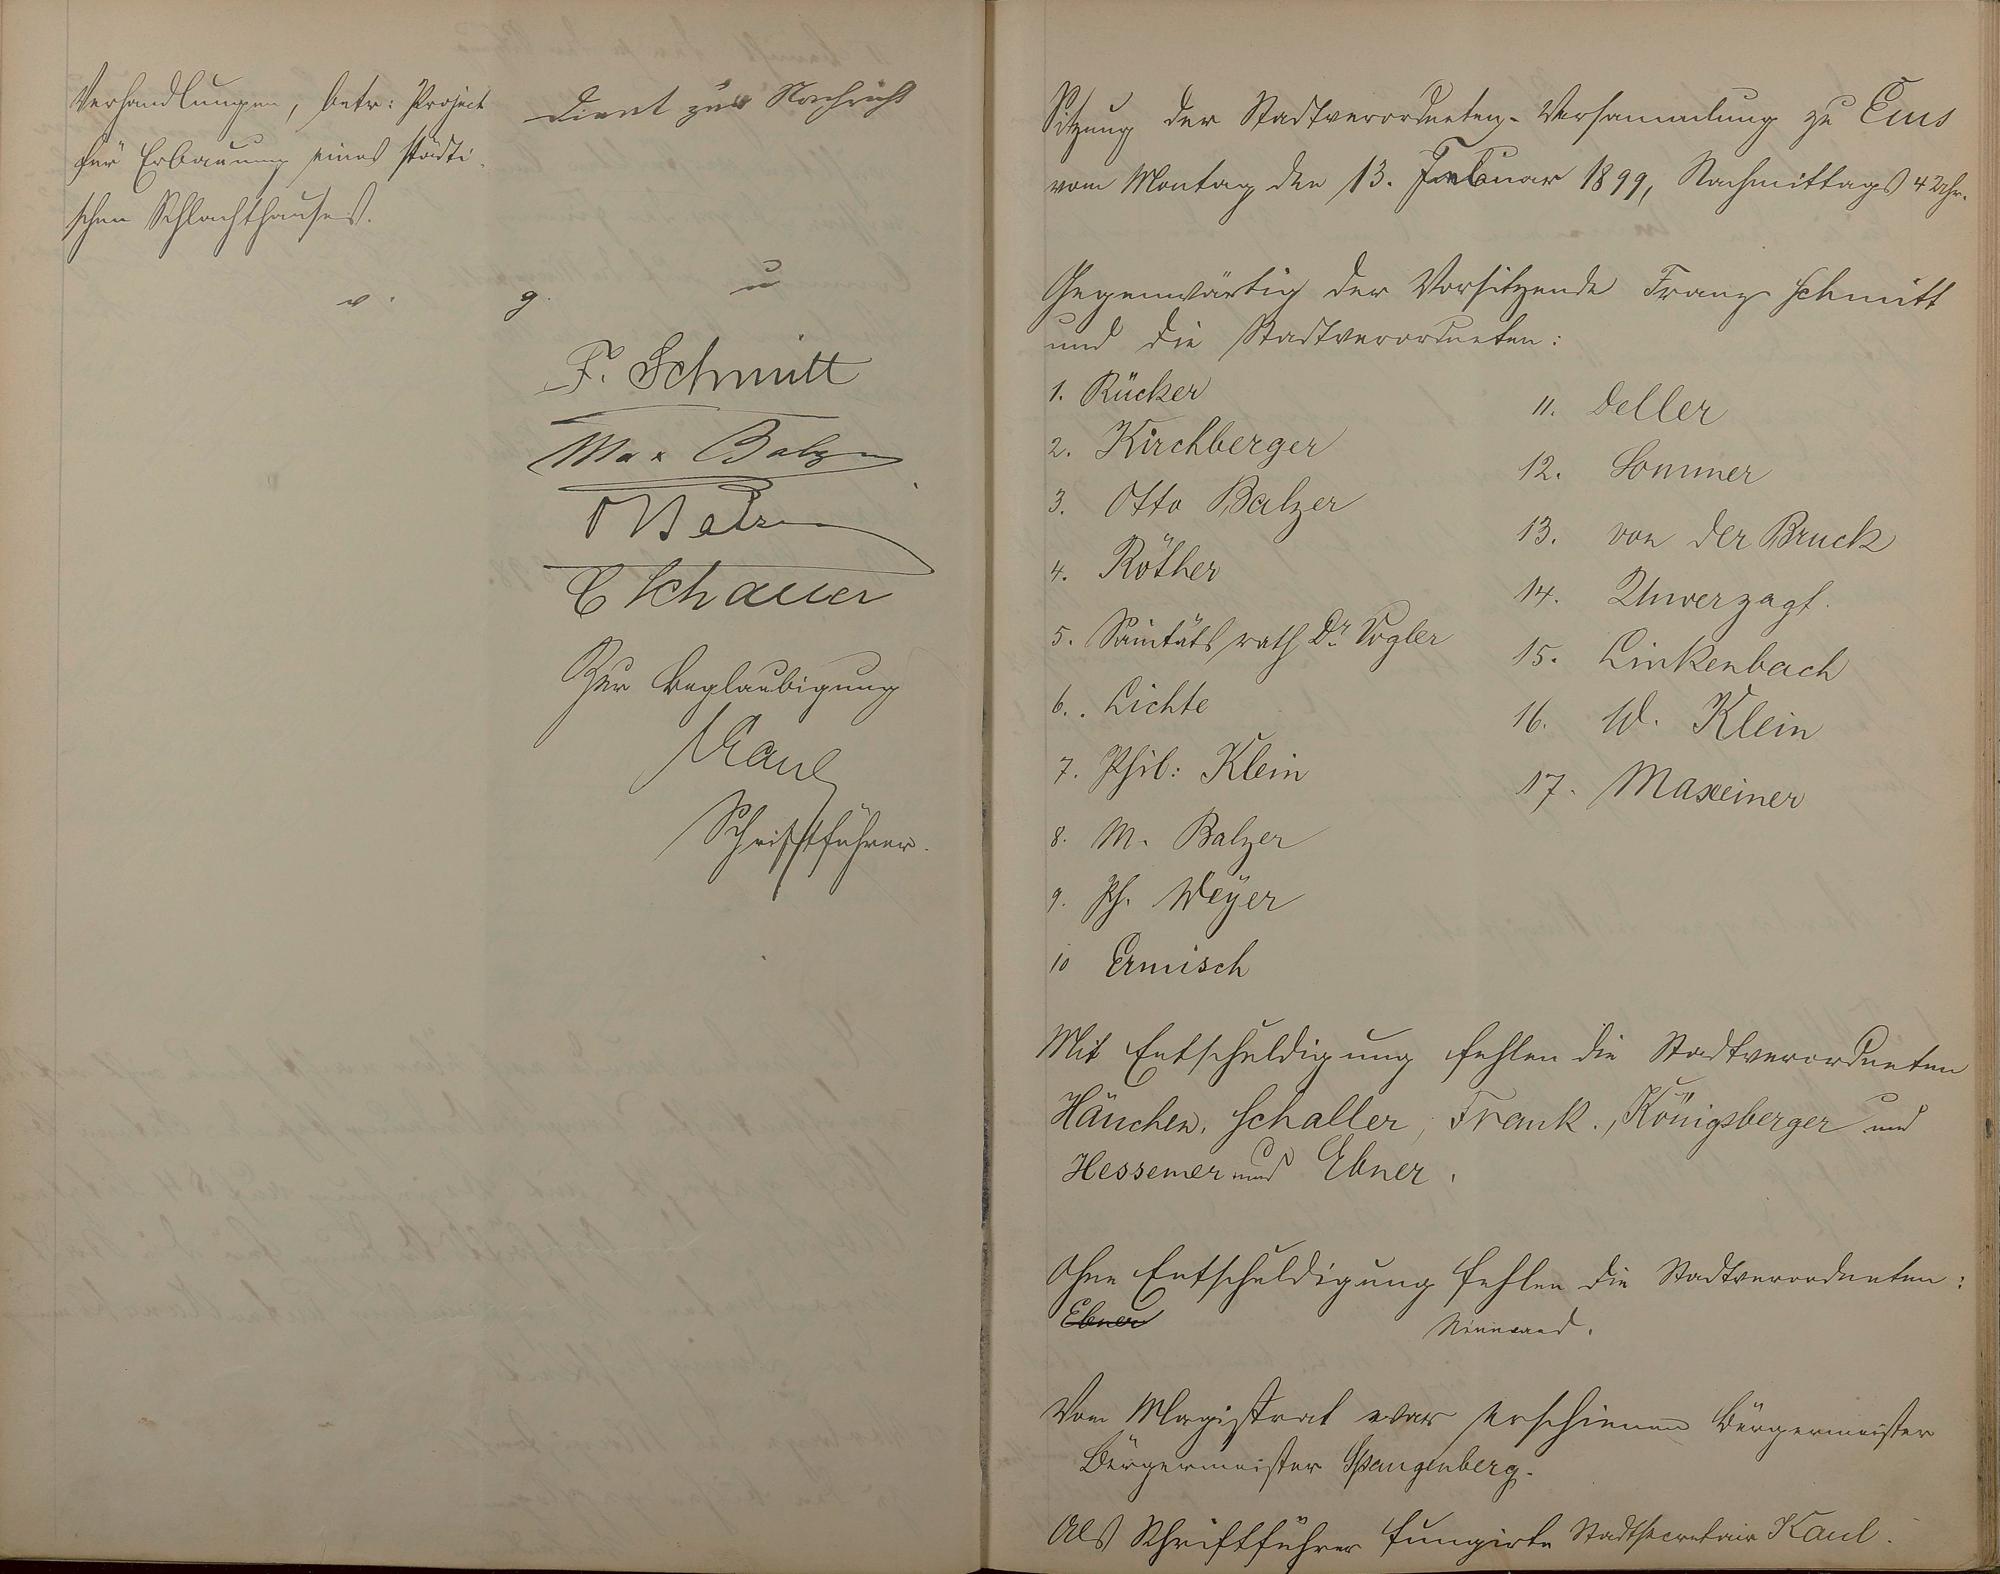 Verhandlungen, betr: Project
für Erbauung eines städti-
schen Schlachthauses.
Dient zur Nachricht
v. g. u
F. Schmitt
Max Balzer
O Balzer
C Schauer
Zur Beglaubigung
Kaul
Schriftführer.
Sitzung der Stadtverordneten-Versammlung zu Ems
vom Montag den 13. Februar 1899, Nachmittags 4 Uhr.
Gegenwärtig der Vorsitzende Franz Schmitt
und die Stadtverordneten:
1. Rücker
2. Kirchberger
3. Otto Balzer
4. Röther
5. Sanitätsrath Dr. Vogler
6. Lichte
7. Phil: Klein
8. M. Balzer
9. Ph. Weyer
10 Ermisch
11. Deller
12. Sommer
13. von der Bruck
14. Unverzagt.
15. Linkenbach
16. W. Klein
17. Maxeiner
Mit Entschuldigung fehlen die Stadtverordneten
Hänchen, Schaller, Frank., Königsberger und
Hessemer und Ebner.
Ohne Entschuldigung fehlen die Stadtverordneten:
Ebner Niemand.
Vom Magistrat war erschienen Bürgermeister
Bürgermeister Spangenberg.
Als Schriftführer fungirte Stadtsecretair Kaul.